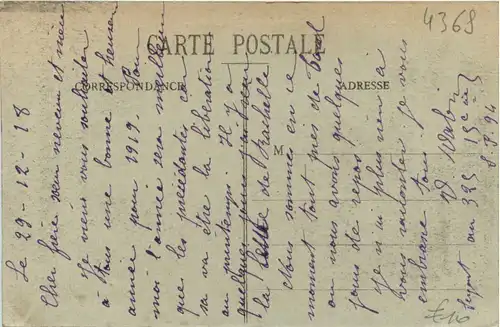 4368
CARTE POSTALE
CORRESPONDANCE
ADRESSE
M
Le 29-12-18
Cher frère neveux et nièce
Je viens vous souhaiter
à tous une bonne et heureuse
année pour 1919. Pour
moi l'année sera meilleure
que les précédentes car
sa va être la libération
au printemps. Il y a
quelques jours
la de Rachelle
Nous sommes en ce
moment tout près de
ou nous avons quelques
jours de repos
Je n'ai plus rien à
vous raconter je vous
embrasse tous
au 325 15e Cie
S.P. 94